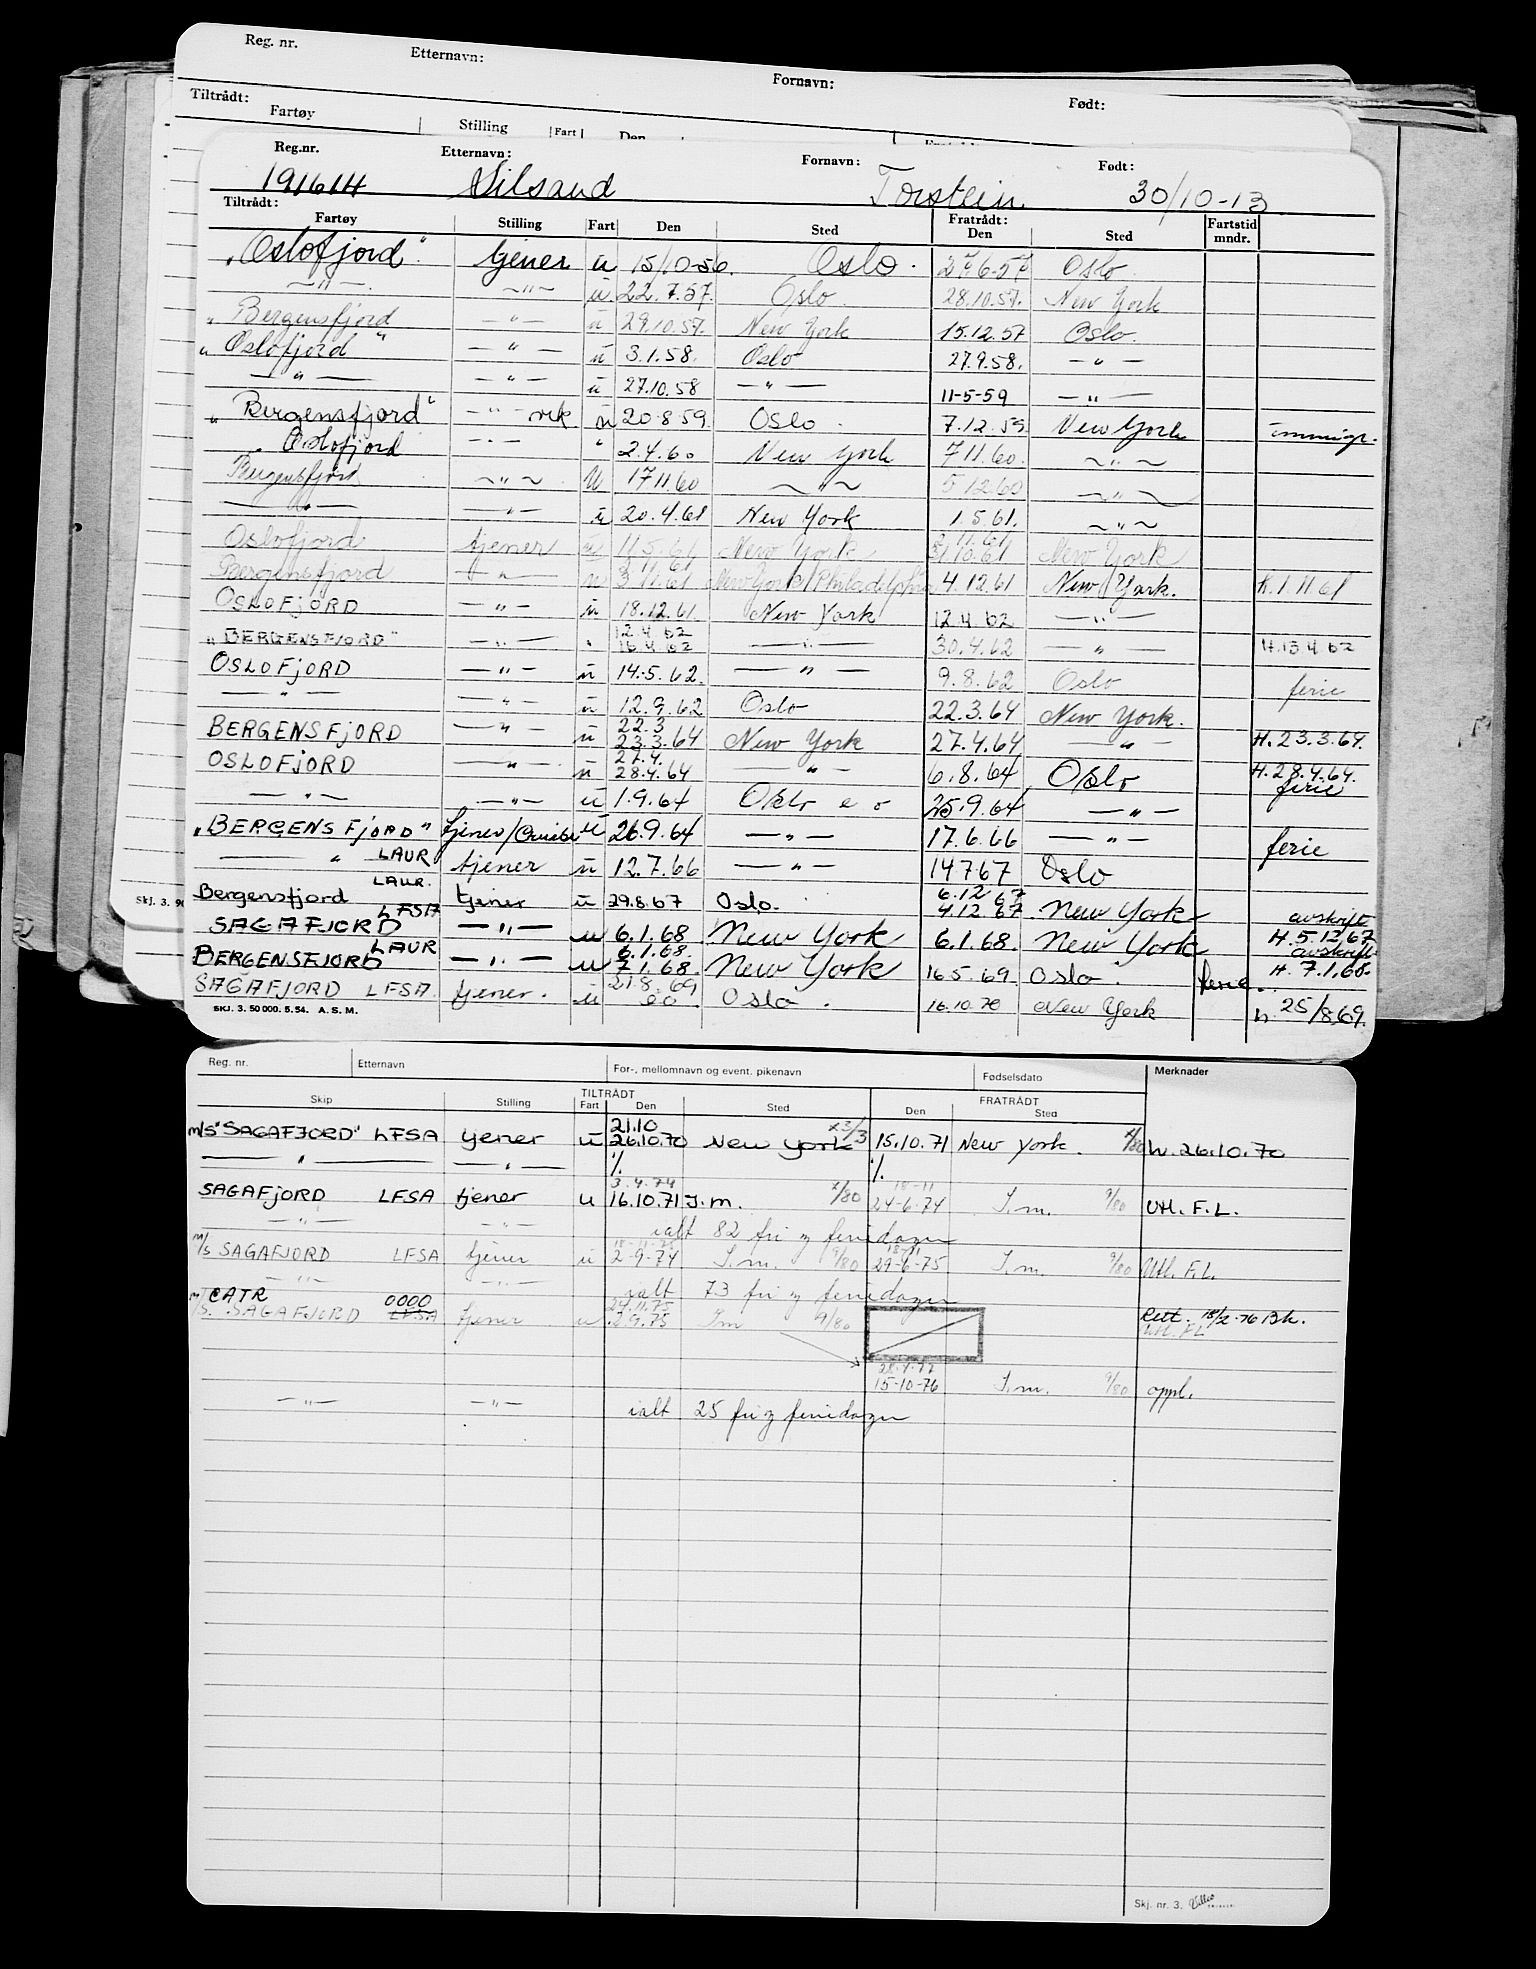 Reg. nr. Etternavn: Fornavn: Født:
Tiltrådt:
Fartøy Stilling Fart Den
Reg.nr. Etternavn: Fornavn: Født:
191614 Torstein 30/10-13
Tiltrådt: Fratrådt:
Fartøy Stilling Fart Den Sted Den Sted Fartstid mndr.
"Oslofjord" tjener u 15/10-56. Oslo. Oslo
—"— —"— u. 22.7.57. Oslo 28.10.57. New York
" Bergensfjord —"— u 29.10.57. New York 15.12.57 Oslo.
" Oslofjord " —"— u 3.1.58. Oslo 27.9.58. —"—
—"— —"— u 27.10.58 —"— 11-5-59 —"—
" Bergensfjord" —"— u 20.8.59. Oslo. 7.12.59. New York immigr.
" Oslofjord —"— " 2.4.60 New York 7.11.60. —"—
Bergensfjord —"— U 17.11.60 —"— 5.12.60 —"—
—"— —"— u 20.4.61 New York 1.5.61. —"—
Oslofjord tjener u 11.5.61 New York 31.10.61 New York
Bergensfjord —"— u 3.11.61 New York/Philadelphia 4.12.61 New York. H.1.11.61
OSLOFJORD —"— u 18.12.61. New York 12.4.62 —"—
"BERGENSFJORD" —"— " 12.4.62 16.4.62 —"— 30.4.62 —"— H.13.4.62
OSLOFJORD —"— u 14.5.62. —"— 9.8.62 Oslo ferie
—"— —"— u 12.9.62 Oslo 22.3.64 New York.
BERGENSFJORD —"— u 22.3 23.3.64 New York 27.4.64 —"— H.23.3.64.
OSLOFJORD —"— u 27.4. 28.4.64 —"— 6.8.64 Oslo H.28.4.64. ferie
—"— —"— u 1.9.64 Oslo e o 25.9.64 —"—
"BERGENSFJORD" LAUR tjener/Cruise u 26.9.64 —"— 17.6.66 —"— ferie
—"— LAUR. tjener u 12.7.66 —"— 14767 Oslo
Bergensfjord tjener u 29.8.67 Oslo. 6.12.67 4.12.67 New York avskrift H.5.12.67
SAGAFJORD LFSA —"— u 6.1.68 New York 6.1.68. New York avskrift
BERGENSFJORD LAUR —"— u 6.1.68. 7.1.68. New York 16.5.69 Oslo. ferie. H.7.1.68.
SAGAFJORD LFSA. tjener. u 21.8.69 Oslo. 16.10.70 New York h 25/8.69.
SKJ. 3. 50 000. 5. 54. A. S. M.
Skj. 3.
Reg. nr. Etternavn For-, mellomnavn og event. pikenavn Fødselsdato Merknader
TILTRÅDT FRATRÅDT
Skip Stilling Fart Den Sted Den Sted
m/s "SAGAFJORD" LFSA tjener u 21.10 26.10.70 New York x3/3 15.10.71 New York. x/80 h. 26.10.70
—"— —"— ./. ./.
SAGAFJORD LFSA tjener u 3.4.74 16.10.71 I.m. x/80 18-11 24-6-74 I.m. 9/80 Utl. F.L.
—"— —"— ialt 82 fri og feriedager
m/s SAGAFJORD LFSA tjener u 2-9-74 I.m. 9/80 18-11 29-6-75 I.m. 9/80 Utl. F.L.
—"— —"— ialt 73 fri og feriedager
CATR 0000
m/s. SAGAFJORD LFSA tjener u 24.11.75 2.9.75 Im 9/80 Rett. 18/2-76 Bk. Utl. F.L
28.4.77 15-10-76 I.m. 9/80 oppl.
—"— —"— ialt 25 fri og feriedager
Skj. nr. 3.